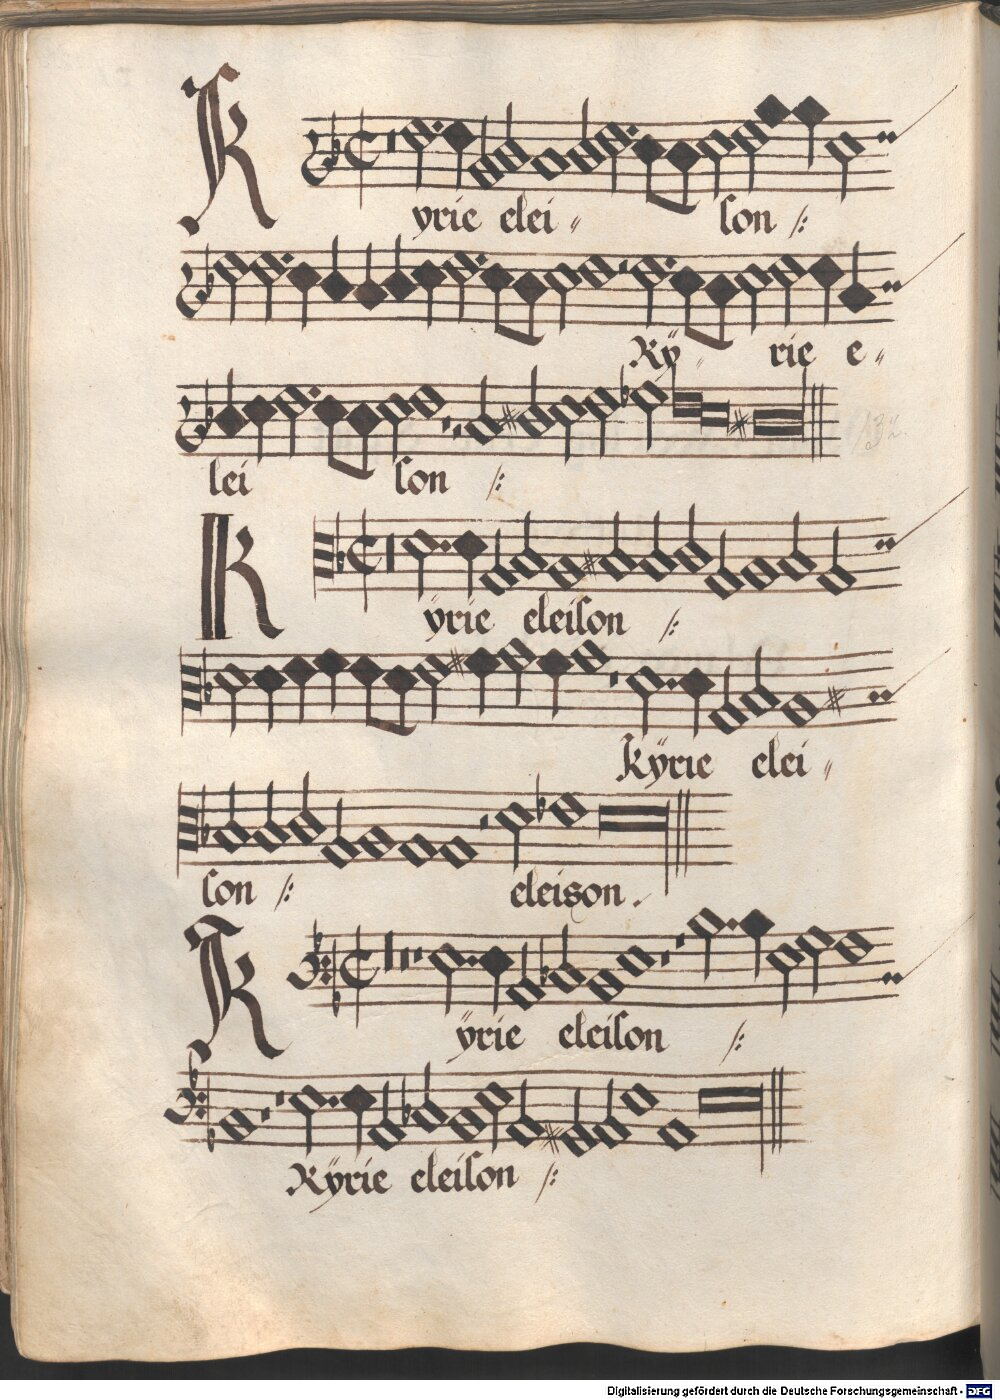 Kyrie elei〃 ſon /:
Kÿ〃 rie e〃
lei ſon /:
Kÿrie eleiſon /:
kÿrie elei〃
ſon /: eleison.
Kÿrie eleiſon /:
Kÿrie eleiſon /:
Digitalisierung gefördert durch die Deutsche Forschungsgemeinschaft - DFG